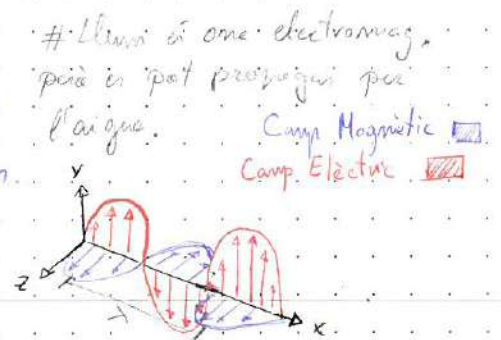 # Llum és ona electromag.
però es pot propagar per
l'aigua.
Camp Magnètic
Camp Elèctric
n.
Y
Z
λ
X